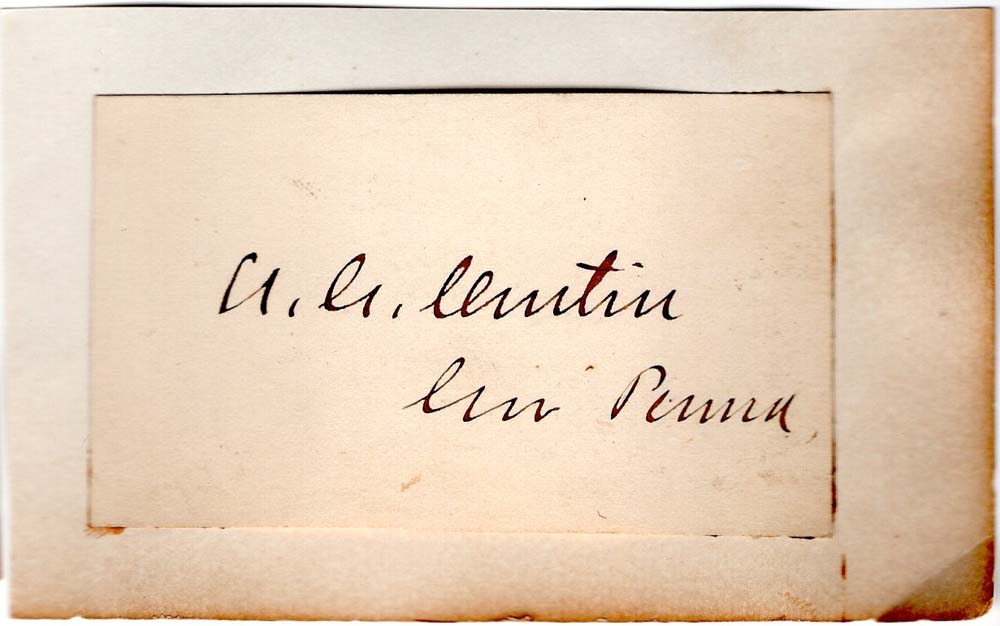 A. G. Curtin
Gov Penna